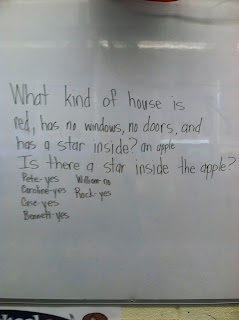 What kind of house is
red, has no windows, no doors, and
has a star inside? an apple
Is there a star inside the apple?
Pete-yes William-no
Caroline-yes Rock-yes
Case-yes
Bennett-yes